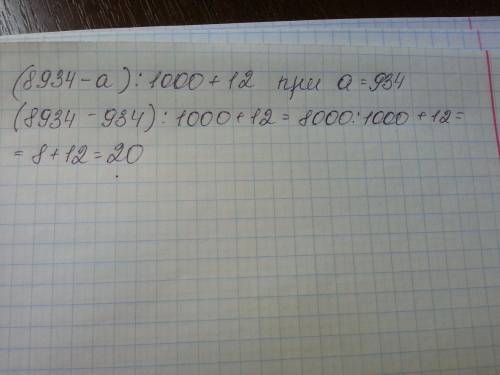 (8934-а):1000+12 при а=934
(8934-934):1000+12=8000:1000+12=
=8+12=20